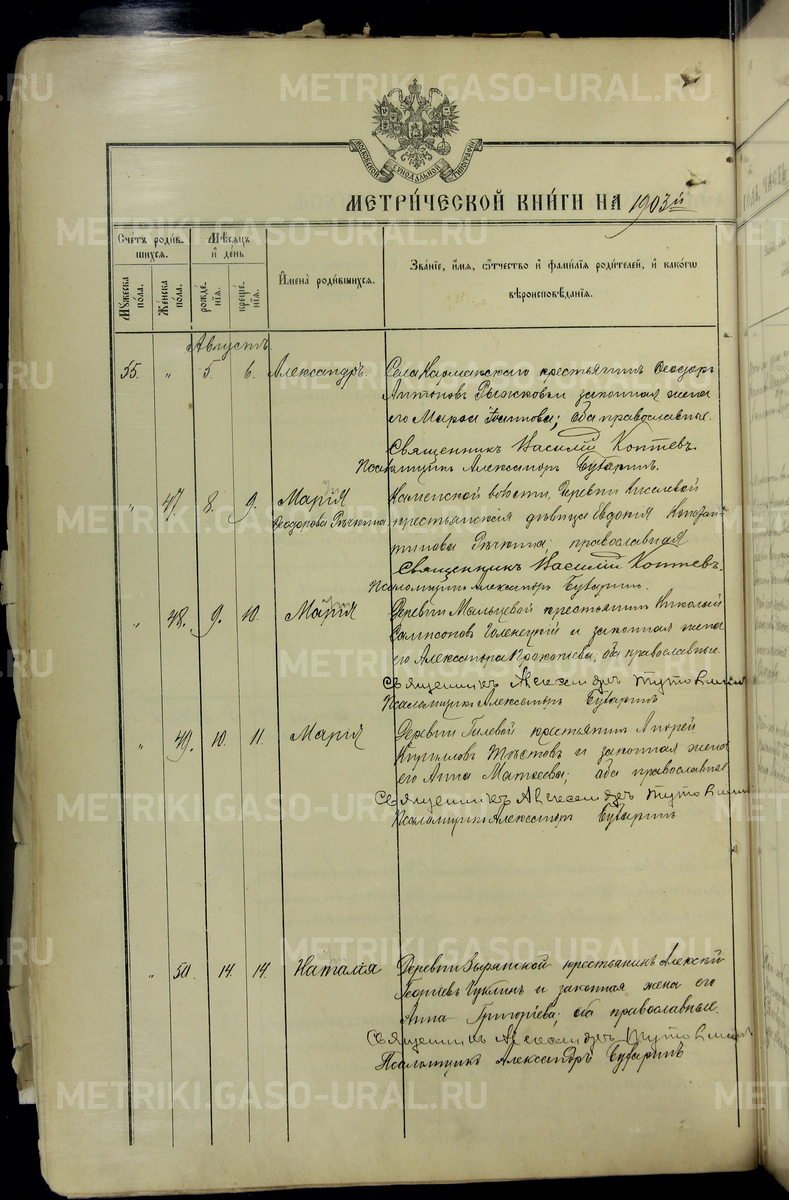 METRIKI.GASO-URAL.RU
МОСКОВСКОЙ СѴНОДАЛЬНОЙ ТИПОГРАФІИ
МЕТРИ́ЧЕСКОЙ КНИ́ГИ НА 1903й
Сче́тъ роди́вшихся.
Мѣ́сяцъ и҆ де́нь
Мꙋ́жеска по́ла.
Же́нска по́ла.
рожде́нїѧ.
креще́нїѧ.
И҆мена̀ роди́вшихся.
Зва́нїе, и҆́мѧ, ѻ҆́тчество и҆ фами́лїѧ роди́телей, и҆ како́гѡ
вѣроисповѣ́данїѧ.
Августъ.
55. " 5. 6. Александръ. Села крестьянинъ Ѳеодоръ
Антоновъ Рыжковъ и законная жена
его Марѳа; оба православные.
Священникъ Василій Коптевъ.
Псаломщикъ Александръ Бухаринъ.
" 47. 8. 9. Марія Каменской волости, деревни
Ѳеодорова Рѣчкина. крестьянская дѣвица Евдокія Констан-
тинова Рѣчкина православная
Священникъ Василій Коптевъ.
Псаломщикъ Александръ Бухаринъ.
" 48. 9. 10. Марія Деревни Мальцевой крестьянинъ Николай
Сампсоновъ и законная жена
его Александра Прокопіева; оба православные.
Священникъ Александръ
Псаломщикъ Александръ Бухаринъ
" 49. 10. 11. Марія Деревни Гилевой крестьянинъ Андрей
Кирилловъ и законная жена
его Анна Матѳеева; оба православные
Священникъ Александръ
Псаломщикъ Александръ Бухаринъ
" 50. 14. 14. Наталія Деревни Зырянской крестьянинъ Алексѣй
Георгіевъ Чуклинъ и законная жена его
Анна Григоріева; оба православные.
Священникъ Александръ
Псаломщикъ Александръ Бухаринъ